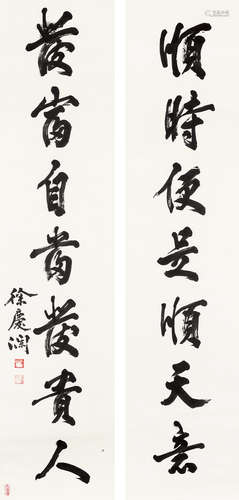 順時便是順天意
發富自當發貴人
徐慶